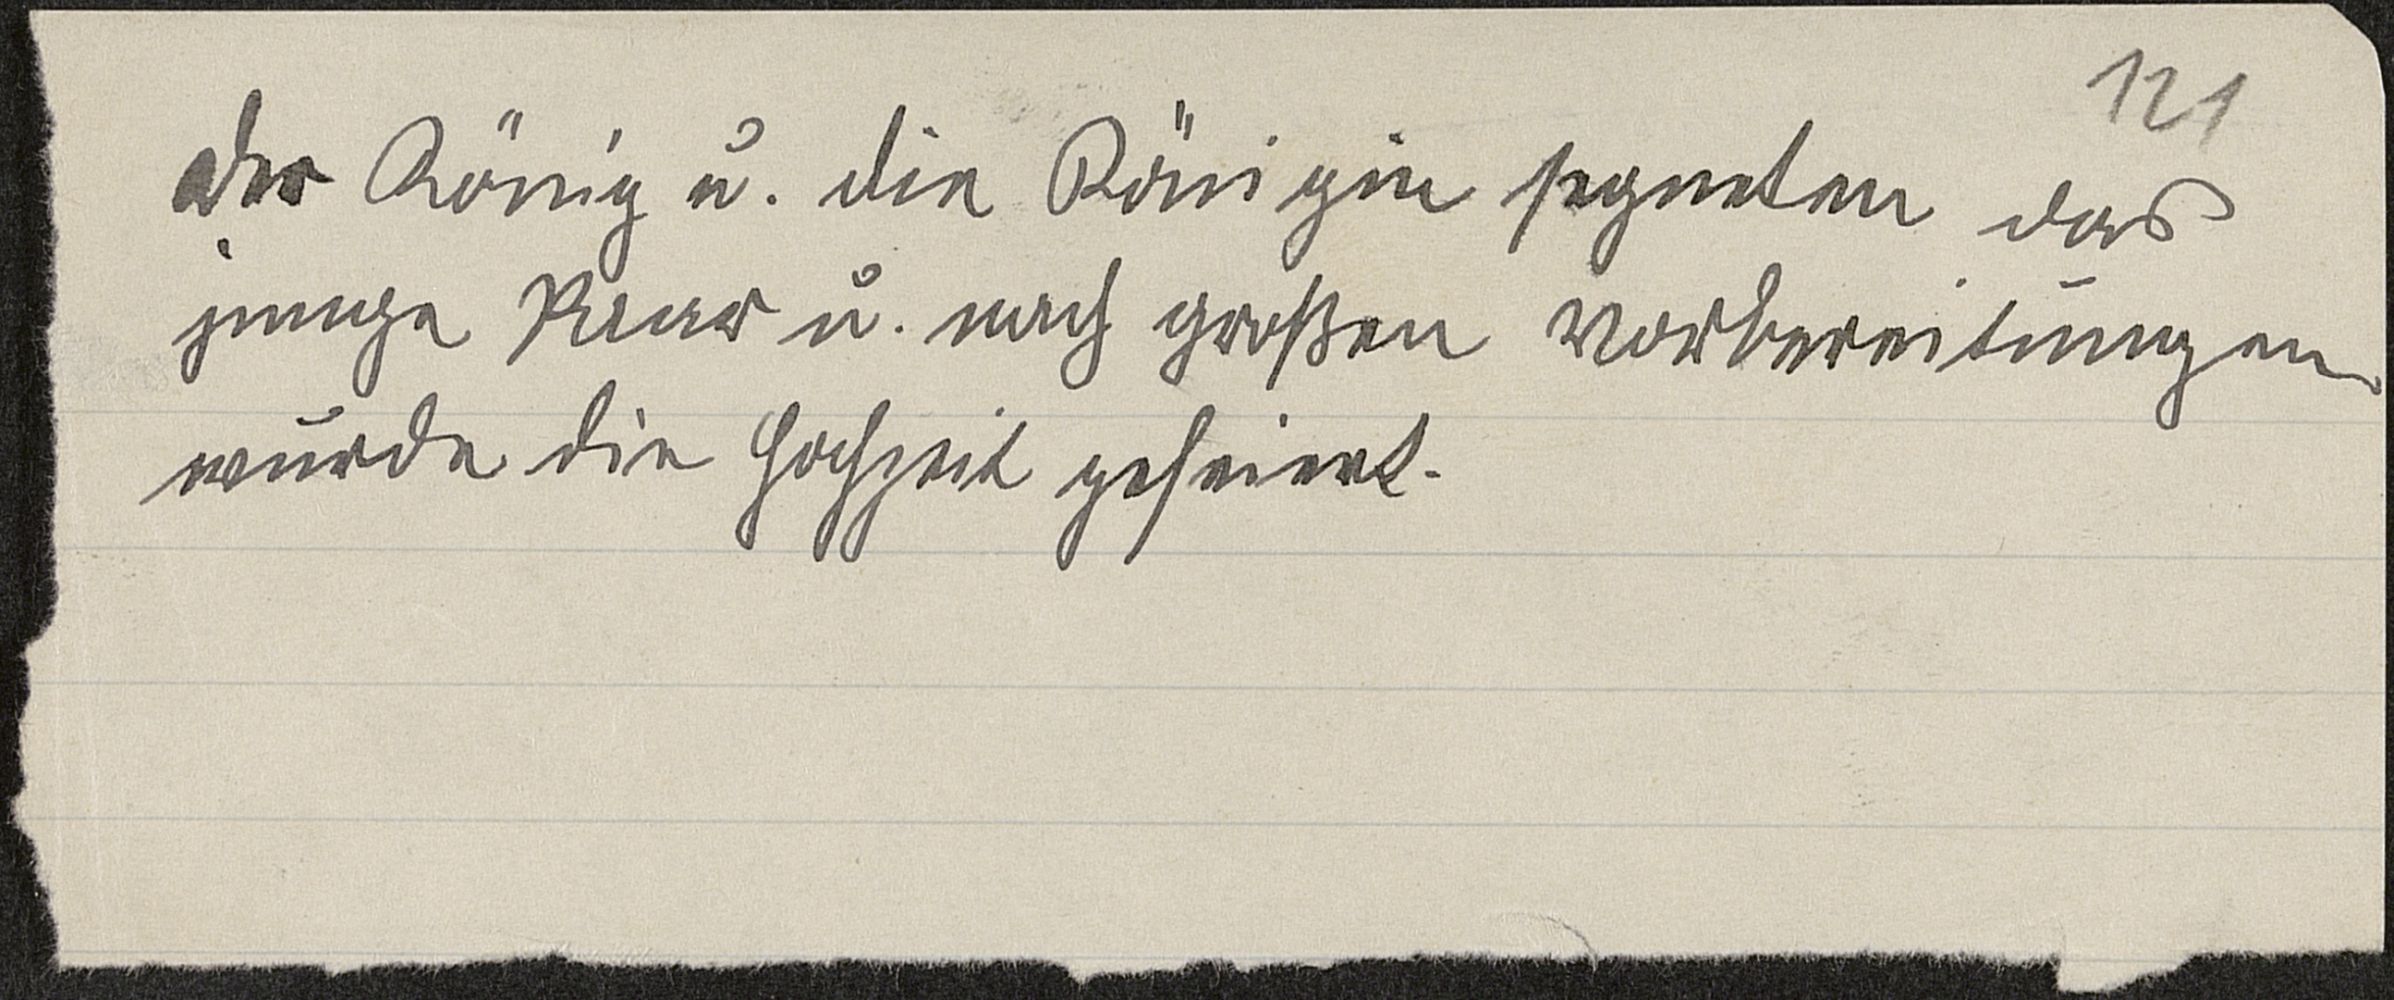 121
Der König u. die Königin segneten das
junge Paar u. nach großen Vorbereitungen
wurde die Hochzeit gefeiert.